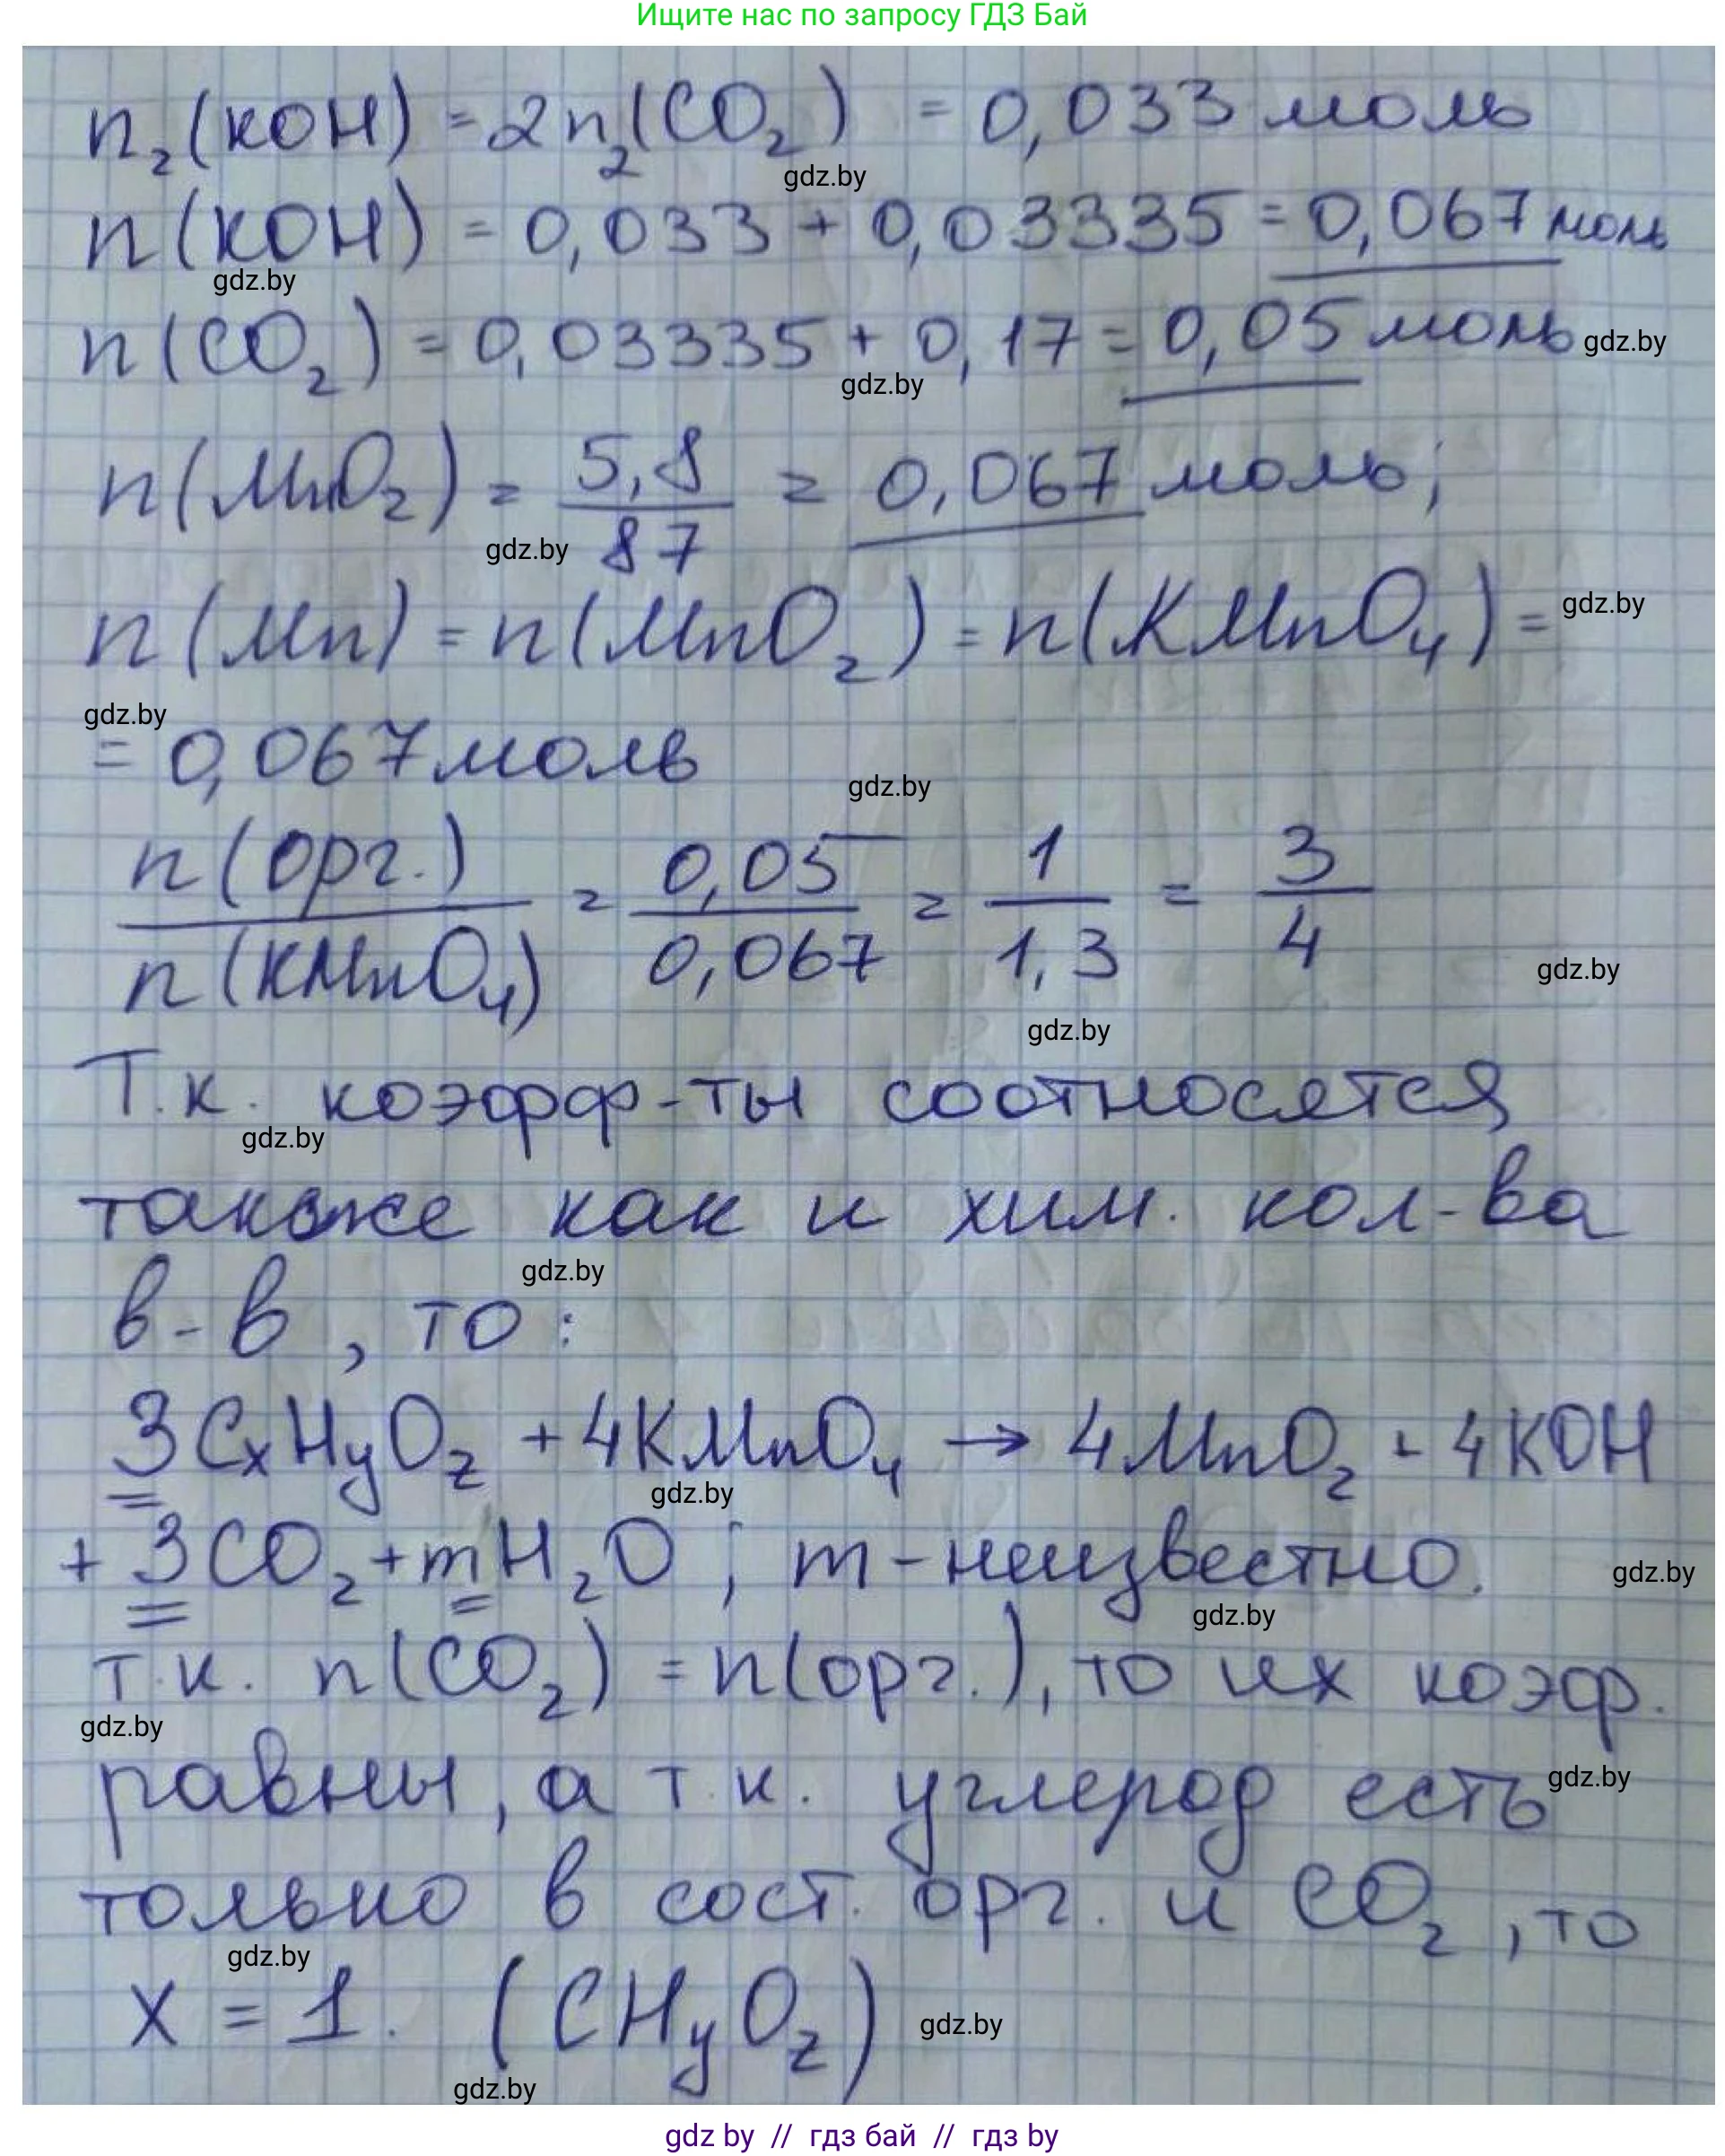 Ищите нас по запросу ГДЗ Бай
n₂(KOH) = 2n₂(CO₂) = 0,033 моль
gdz.by
n(KOH) = 0,033 + 0,03335 = 0,067 моль
gdz.by
n(CO₂) = 0,03335 + 0,17 = 0,05 моль gdz.by
gdz.by
n(MnO₂) = 5,8/87 = 0,067 моль;
gdz.by
n(Mn) = n(MnO₂) = n(KMnO₄) = gdz.by
gdz.by
= 0,067 моль
gdz.by
n(орг.)/n(KMnO₄) = 0,05/0,067 = 1/1,3 = 3/4
gdz.by
gdz.by
Т.к. коэфф-ты соотносятся
gdz.by
также как и хим. кол-ва
gdz.by
в-в, то:
3CxHyOz + 4KMnO₄ → 4MnO₂ + 4KOH
gdz.by
+ 3CO₂ + mH₂O; m - неизвестно. gdz.by
gdz.by
т.к. n(CO₂) = n(орг.), то их коэф.
gdz.by
равны, а т.к. углерод есть gdz.by
только в сост. орг. и CO₂, то
gdz.by
x = 1. (CHyOz) gdz.by
gdz.by
gdz by // гдз бай // гдз by